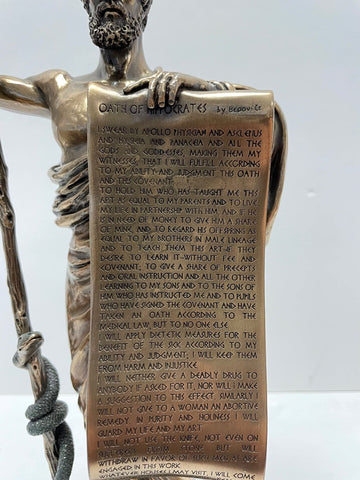 OATH OF HIPPOCRATES
I SWEAR BY APOLLO PHYSICIAN AND ASCLEPIUS
AND HYGIEIA AND PANACEIA AND ALL THE
GODS AND GODDESSES, MAKING THEM MY
WITNESSES, THAT I WILL FULFILL ACCORDING
TO MY ABILITY AND JUDGMENT THIS OATH
AND THE COVENANT:
TO HOLD HIM WHO HAS TAUGHT ME THIS
ART AS EQUAL TO MY PARENTS AND TO LIVE
MY LIFE IN PARTNERSHIP WITH HIM, AND IF HE
IS IN NEED OF MONEY TO GIVE HIM A SHARE
OF MINE, AND TO REGARD HIS OFFSPRING AS
EQUAL TO MY BROTHERS IN MALE LINEAGE
AND TO TEACH THEM THIS ART-IF THEY
DESIRE TO LEARN IT-WITHOUT FEE AND
COVENANT; TO GIVE A SHARE OF PRECEPTS
AND ORAL INSTRUCTION AND ALL THE OTHER
LEARNING TO MY SONS AND TO THE SONS OF
HIM WHO HAS INSTRUCTED ME AND TO PUPILS
WHO HAVE SIGNED THE COVENANT AND HAVE
TAKEN AN OATH ACCORDING TO THE
MEDICAL LAW, BUT TO NO ONE ELSE.
I WILL APPLY DIETETIC MEASURES FOR THE
BENEFIT OF THE SICK ACCORDING TO MY
ABILITY AND JUDGMENT; I WILL KEEP THEM
FROM HARM AND INJUSTICE.
I WILL NEITHER GIVE A DEADLY DRUG TO
ANYBODY IF ASKED FOR IT, NOR WILL I MAKE
A SUGGESTION TO THIS EFFECT. SIMILARLY I
WILL NOT GIVE TO A WOMAN AN ABORTIVE
REMEDY. IN PURITY AND HOLINESS I WILL
GUARD MY LIFE AND MY ART.
I WILL NOT USE THE KNIFE, NOT EVEN ON
SUFFERERS FROM STONE, BUT WILL
WITHDRAW IN FAVOR OF SUCH MEN AS ARE
ENGAGED IN THIS WORK.
WHATEVER HOUSES I MAY VISIT, I WILL COME